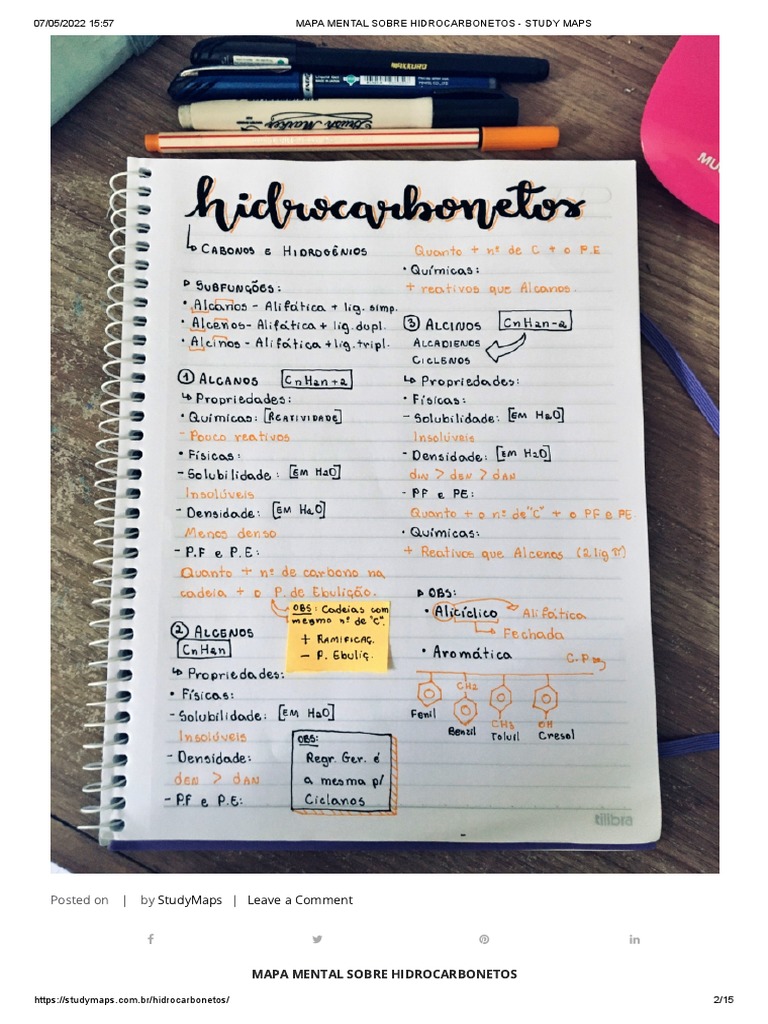 07/05/2022 15:57
MAPA MENTAL SOBRE HIDROCARBONETOS - STUDY MAPS
Brush Marker
MU
hidrocarbonetos
↳ CABONOS E HIDROGÊNIOS
▷ SUBFUNÇÕES:
• Alcanos - Alifática + lig. simp.
• Alcenos - Alifática + lig. dupl.
• Alcinos - Alifática + lig. tripl.
① ALCANOS CnH2n+2
↳ Propriedades:
• Químicas: [REATIVIDADE]
- Pouco reativos
• Físicas:
- Solubilidade: [EM H2O]
Insolúveis
- Densidade: [EM H2O]
Menos denso
- P.F e P.E:
Quanto + nº de carbono na
cadeia + o P. de Ebulição.
OBS: Cadeias com
mesmo nº de "C".
+ RAMIFICAÇ.
- P. Ebuliç.
② ALCENOS
CnH2n
↳ Propriedades:
• Físicas:
- Solubilidade: [EM H2O]
Insolúveis
- Densidade:
dEN > dAN
- P.F e P.E:
OBS:
Regr. Ger. é
a mesma p/
Ciclanos
Quanto + nº de C + o P.E
• Químicas:
+ reativos que Alcanos.
③ ALCINOS CnH2n-2
ALCADIENOS
CICLENOS
↳ Propriedades:
• Físicas:
- Solubilidade: [EM H2O]
Insolúveis
- Densidade: [EM H2O]
dIN > dEN > dAN
- PF e PE:
Quanto + o nº de "C" + o PF e PE
• Químicas:
+ Reativos que Alcenos (2 lig π)
▷ OBS:
• Alicíclico → Alifática
→ Fechada
• Aromática C.P
CH2
CH3
OH
Fenil
Benzil
Toluil
Cresol
tilibra
Posted on | by StudyMaps | Leave a Comment
MAPA MENTAL SOBRE HIDROCARBONETOS
https://studymaps.com.br/hidrocarbonetos/
2/15